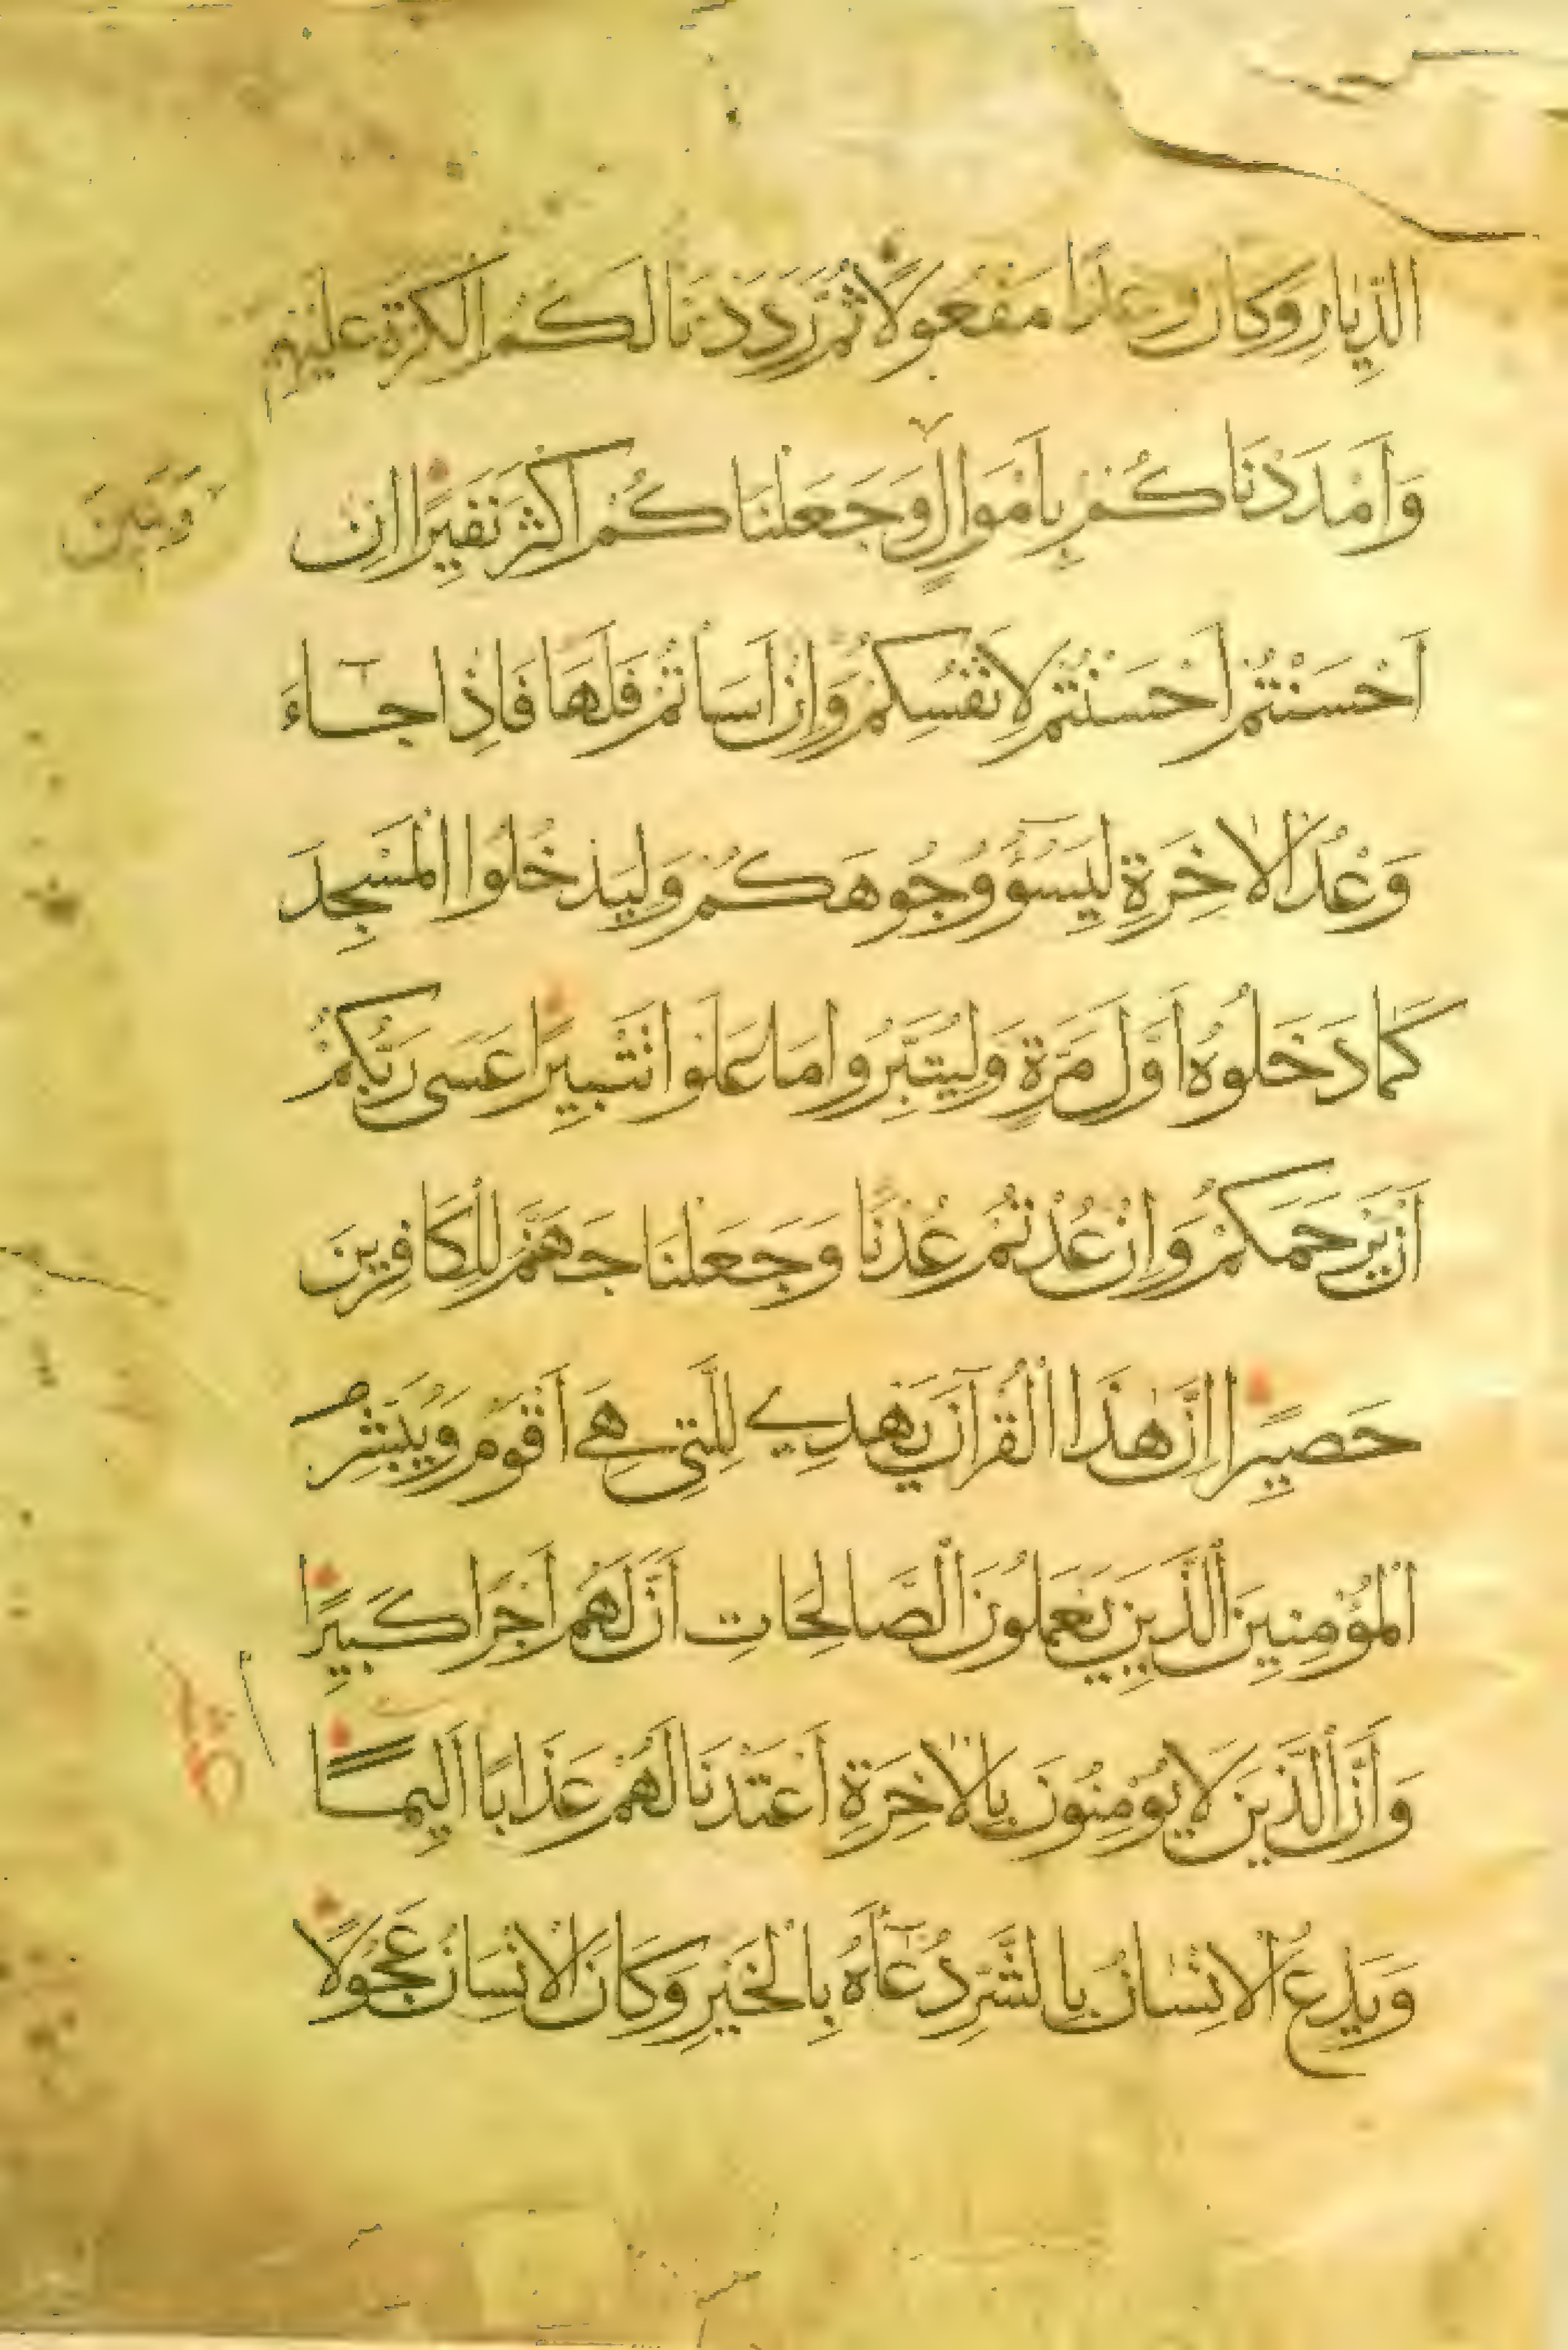 الدِّيَارِ وَكَانَ وَعْدًا مَفْعُولًا ثُمَّ رَدَدْنَا لَكُمُ الْكَرَّةَ عَلَيْهِمْ
وَأَمْدَدْنَاكُمْ بِأَمْوَالٍ وَجَعَلْنَاكُمْ أَكْثَرَ نَفِيرًا إِنْ
وَبَنِينَ
أَحْسَنْتُمْ أَحْسَنْتُمْ لِأَنْفُسِكُمْ وَإِنْ أَسَأْتُمْ فَلَهَا فَإِذَا جَاءَ
وَعْدُ الْآخِرَةِ لِيَسُوؤُا وُجُوهَكُمْ وَلِيَدْخُلُوا الْمَسْجِدَ
كَمَا دَخَلُوهُ أَوَّلَ مَرَّةٍ وَلِيُتَبِّرُوا مَا عَلَوْا تَتْبِيرًا عَسَى رَبُّكُمْ
أَنْ يَرْحَمَكُمْ وَإِنْ عُدْتُمْ عُدْنَا وَجَعَلْنَا جَهَنَّمَ لِلْكَافِرِينَ
حَصِيرًا إِنَّ هٰذَا الْقُرْآنَ يَهْدِي لِلَّتِي هِيَ أَقْوَمُ وَيُبَشِّرُ
الْمُؤْمِنِينَ الَّذِينَ يَعْمَلُونَ الصَّالِحَاتِ أَنَّ لَهُمْ أَجْرًا كَبِيرًا
وَأَنَّ الَّذِينَ لَا يُؤْمِنُونَ بِالْآخِرَةِ أَعْتَدْنَا لَهُمْ عَذَابًا أَلِيمًا
وَيَدْعُ الْإِنْسَانُ بِالشَّرِّ دُعَآءَهُ بِالْخَيْرِ وَكَانَ الْإِنْسَانُ عَجُولًا